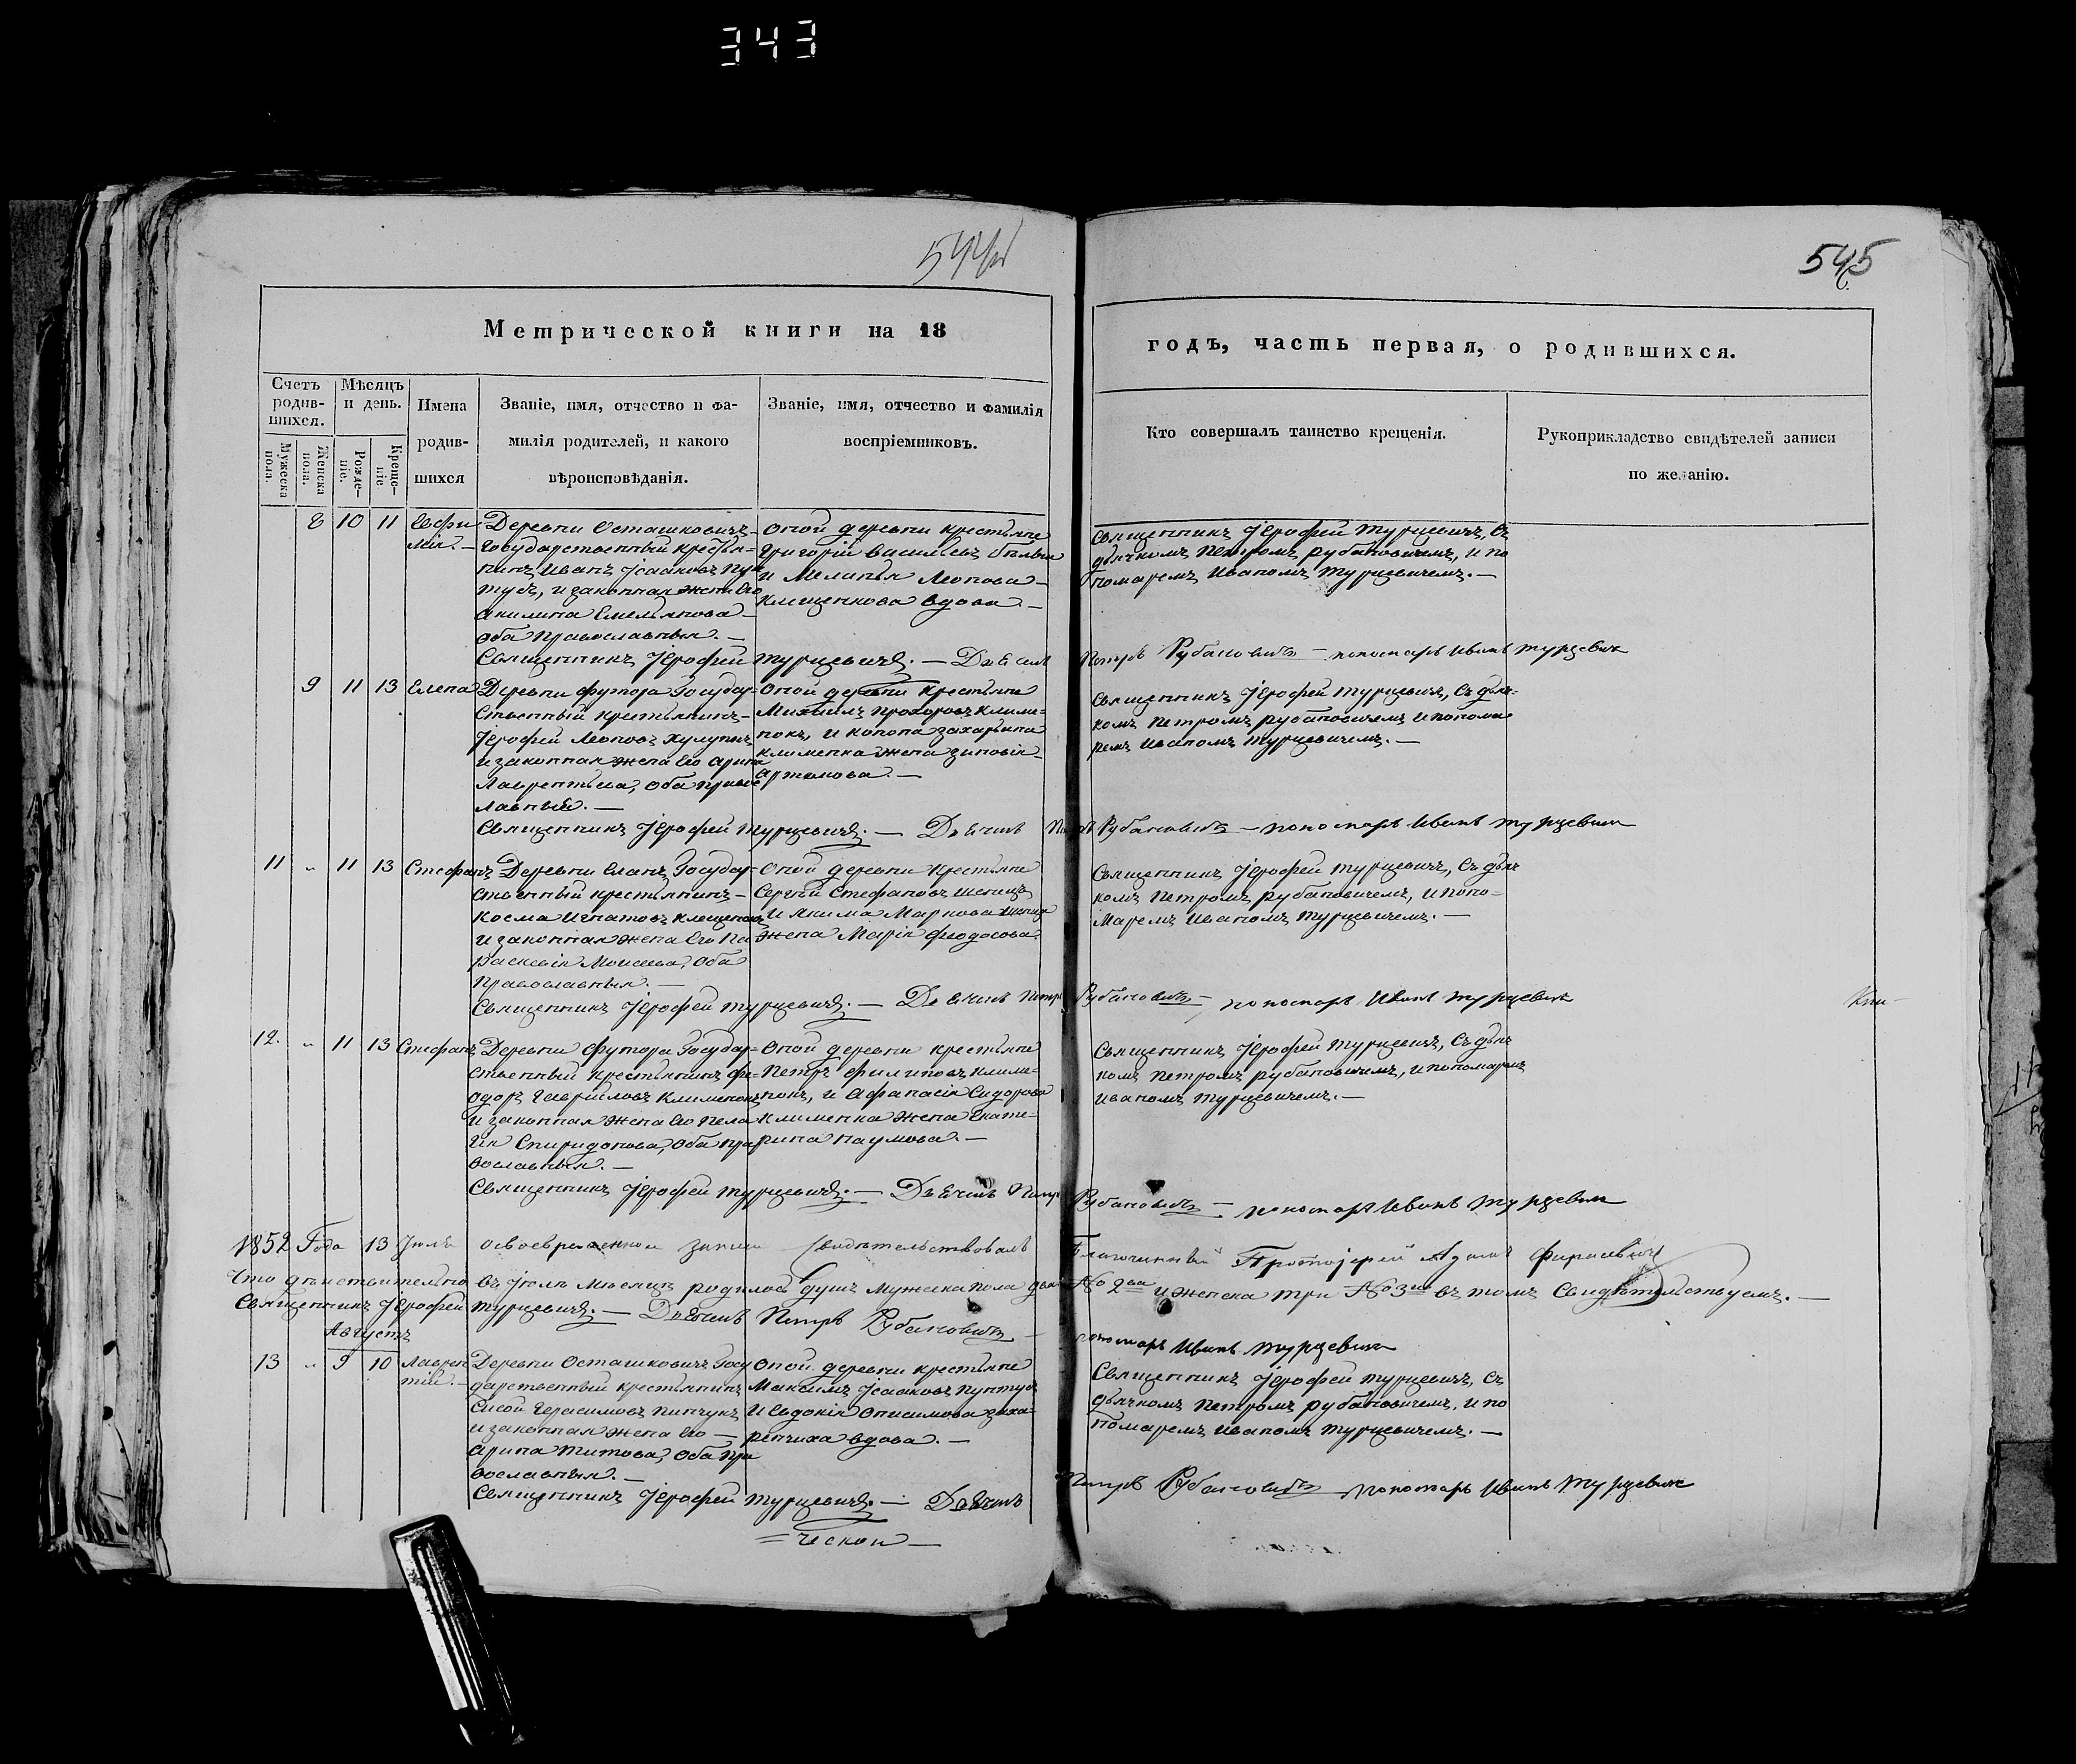 343
545
Метрической книги на 18
годъ, часть первая, о родившихся.
Счетъ родив-шихся.
Мѣсяцъ и день.
Имена родив-шихся
Званіе, имя, отчество и фа-
милія родителей, и какого
вѣроисповѣданія.
Званіе, имя, отчество и фамилія
воспріемниковъ.
Кто совершалъ таинство крещенія.
Рукоприкладство свидѣтелей записи
по желанію.
Мужеска пола.
Женска пола.
Рожде-ніе.
Креще-ніе
8 10 11 Евфи
мія.—
Деревни Осташковичъ
государственный крестья-
нинъ Иванъ Ісааковъ Пун
тусъ, и законная жена Его
Акилина Емельянова
оба Православныя.—
Оной деревни крестьяне
Григорій Васильевъ
и Меланья Леонова
Клещенкова вдова.—
Священникъ Іерофей Турцевичъ, Съ
дьячкомъ Петромъ Рубановичемъ, и по
номаремъ Иваномъ Турцевичемъ.—
Священникъ Іерофей Турцевичъ.— Дьячекъ Петръ Рубановичъ — пономарь Иванъ Турцевичъ
9 11 13 Елена
Деревни Футора Государ-
ственный крестьянинъ
Іерофей Леоновъ
и законная жена Его Арина
Лаврентьева, оба Правос
лавный.—
Оной деревни крестьяне
Михаилъ Прохоровъ Климе-
нокъ, и Конона Захарьина
Клименка жена Зиновія
Артемова.—
Священникъ Іерофей Турцевичъ, Съ дьяч-
комъ Петромъ Рубановичемъ и понома
ремъ Иваномъ Турцевичемъ.—
Священникъ Іерофей Турцевичъ.— Дьячекъ Петръ Рубановичъ — пономарь Иванъ Турцевичъ
11 „ 11 13 Стефанъ
Деревни Еланъ Государ-
ственный крестьянинъ
Косма Игнатовъ Клещенокъ
и законная жена Его Па
раскевія Моисеева, оба
Православныя.—
Оной деревни крестьяне
Сергѣй Стефановъ
и Якима Маркова
жена Марія Феодосова.
Священникъ Іерофей Турцевичъ, Съ дьяч
комъ Петромъ Рубановичемъ, и поно-
маремъ Иваномъ Турцевичемъ.—
Священникъ Іерофей Турцевичъ.— Дьячекъ Петръ Рубановичъ — пономарь Иванъ Турцевичъ
Кни-
12. „ 11 13 Стефанъ
Деревни Футора Государ-
ственный крестьянинъ Фе-
одоръ Гавриловъ Клименокъ
и законная жена Его Пела
гія Спиридонова, оба пра
вославныя.—
Оной деревни крестьяне
Петръ Филиповъ Климе-
нокъ, и Афанасія Сидорова
Клименка жена Екате-
рина Наумова.—
Священникъ Іерофей Турцевичъ, Съ дьяч
комъ Петромъ Рубановичемъ, и пономаремъ
Иваномъ Турцевичемъ.—
Священникъ Іерофей Турцевичъ.— Дьячекъ Петръ Рубановичъ — пономарь Иванъ Турцевичъ
1852 Года 13 Іюля освоевременной записи свидѣтельствовалъ Благочинный Протоіерей Адамъ
Что дѣйствительно въ Іюлѣ мѣсяцѣ родилось душъ мужеска пола два № 2 два и женска три № 3 въ томъ Свидѣтельствуемъ.—
Священникъ Іерофей Турцевичъ.— Дьячекъ Петръ Рубановичъ — пономарь Иванъ Турцевичъ
Августъ
13 „ 9 10 Лаврен
тій.—
Деревни Осташковичъ Госу
дарственный крестьянинъ
Сисой Герасимовъ Пинчукъ
и законная жена Его —
Арина Титова, оба пра
вославныя.—
Оной деревни крестьяне
Максимъ Ісааковъ Пунтусъ
и Евдокія Онисимова Заха-
ренчиха вдова.—
Священникъ Іерофей Турцевичъ, Съ
дьячкомъ Петромъ Рубановичемъ, и по
номаремъ Иваномъ Турцевичемъ.—
Священникъ Іерофей Турцевичъ.— Дьячекъ Петръ Рубановичъ — пономарь Иванъ Турцевичъ
= ческой —